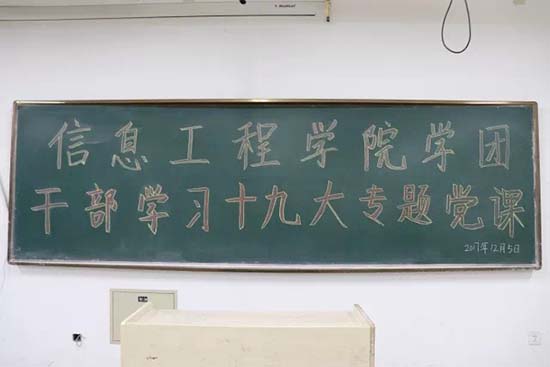 信息工程学院学团
干部学习十九大专题党课
2017年12月5日